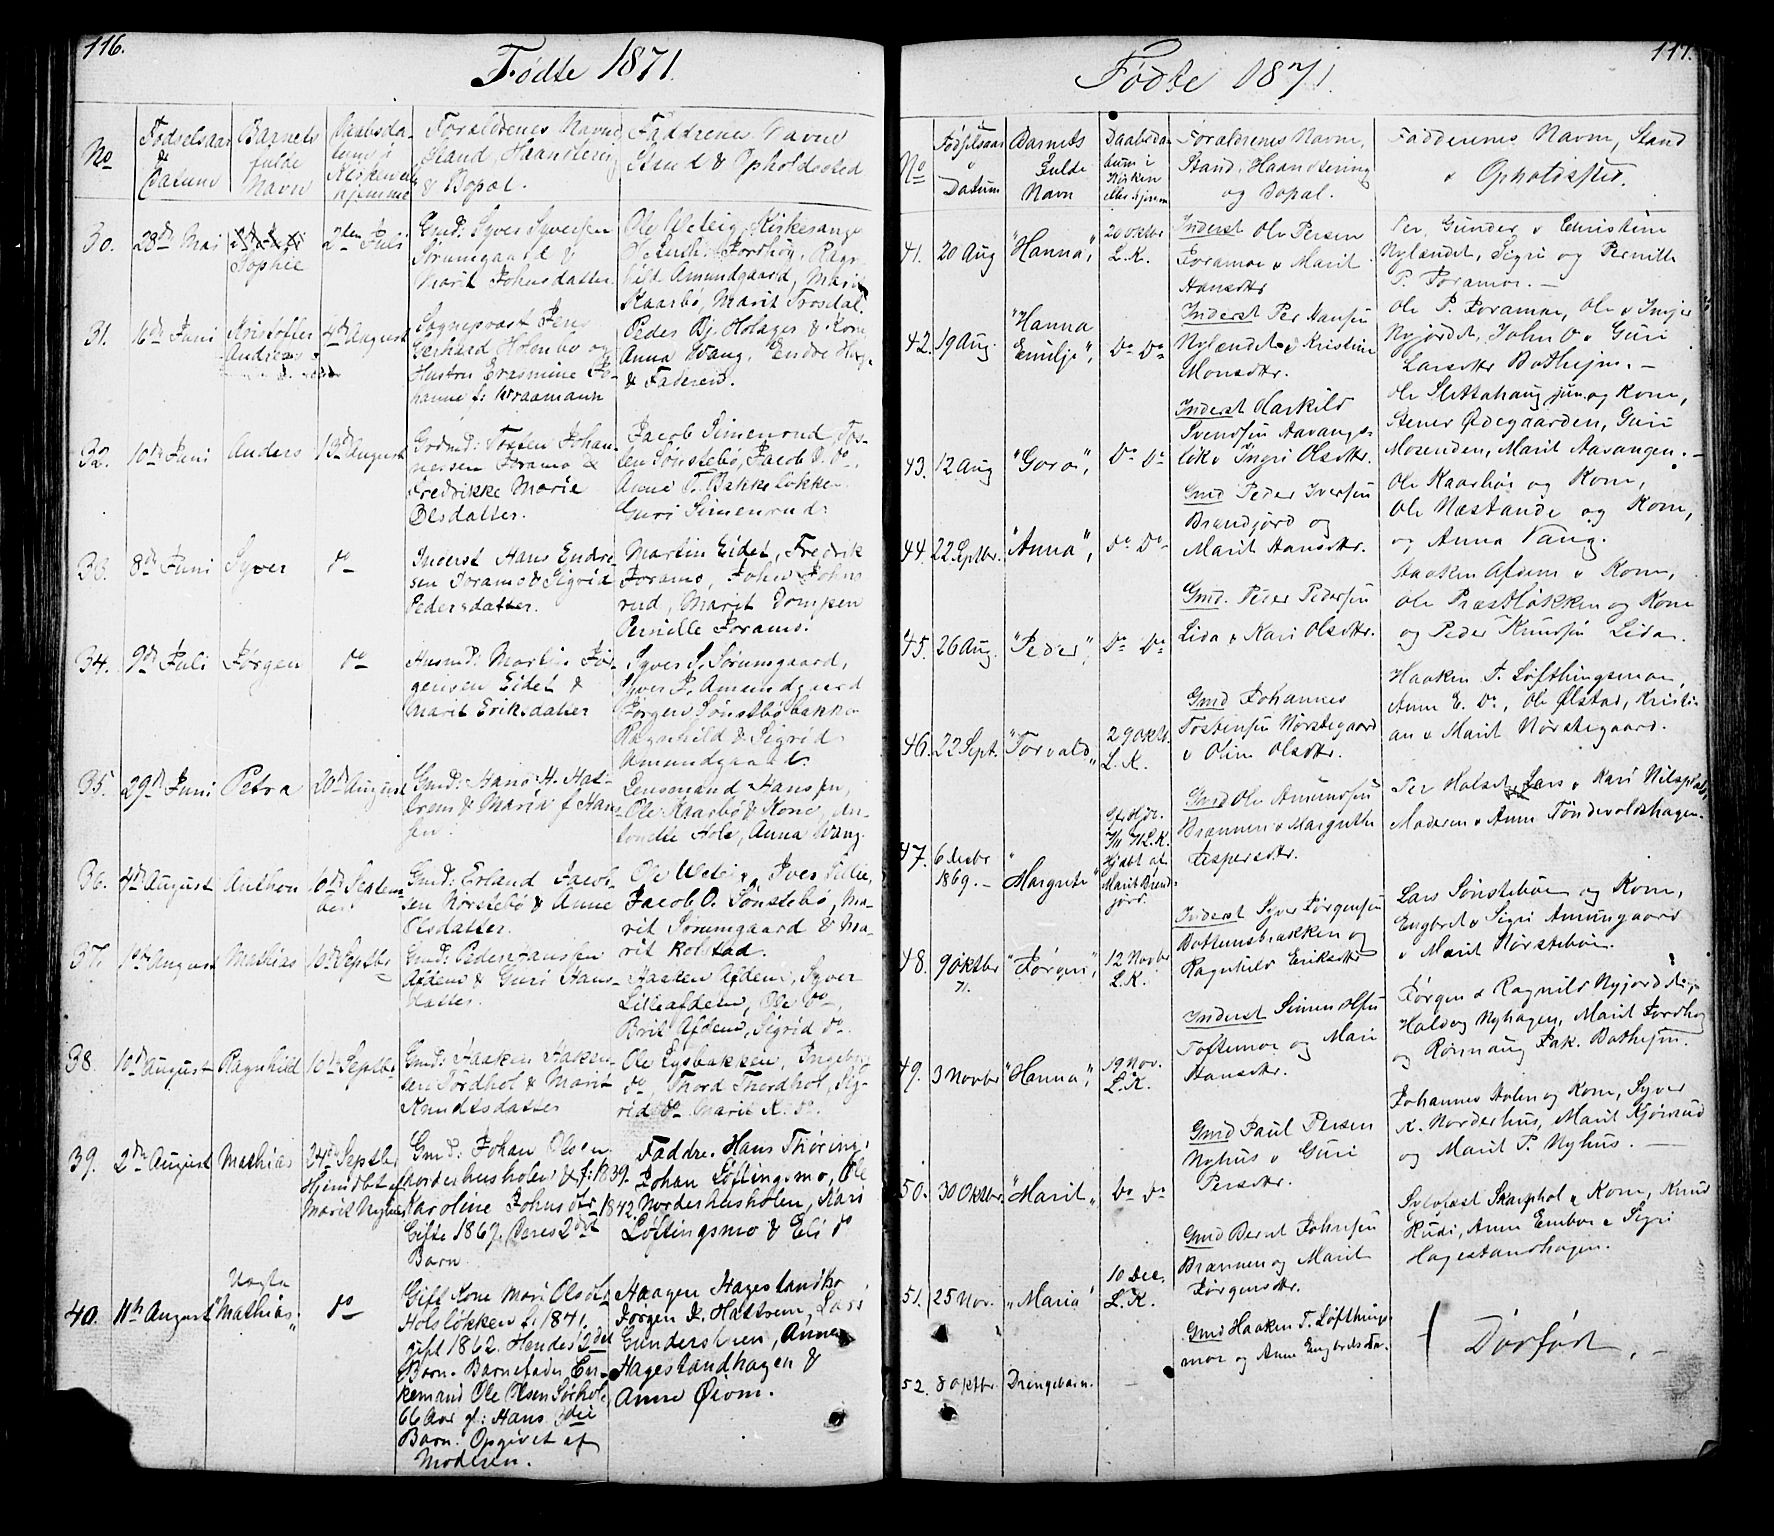 116.
Fødte 1871.
No
Fødselsaar & Datum
Barnets fulde Navn
Daabsdatum i Kirken eller hjemme
Forældrenes Navne, Stand, Haandtering & Bopæl.
Faddrenes Navne Stand & Opholdssted
30.
28de Mai
Sophie
2den Juli
Gmd: Syver Syversen
Sørumgaard &
Marit Johnsdatter
Ole Vedeig, Kirkesange
Amundgaard, Mari
Kaarbø, Marit Trosdal
31.
16de Juni
Kristoffer
Andreas
4de August
Sogneprest Jens
Gerhard Holmboe og
Hustru Erasmine Jo-
hanne f: Kraamann
Peder Bj. Holager & Kone
Anna Wang, Endre
& Faderen.
32.
10de Juni
Anders
13de August
Gmd: Tosten Johan-
nessen Joramo &
Fredrikke Marie
Olsdatter.
Jacob Simenrud, Tos-
ten Sønstebø, Jacob J. do,
Anne P. Bakkeløkken
Guri Simenrud.
33.
8de Juni
Syver
do
Inderst Hans Endre-
sen Joramo & Sigrid
Pedersdatter.
Martin Eidet, Fredrik
Joramo, John Johns
rud, Marit
Pernille Joramo.
34.
9de Juli
Jørgen
do
Husmd: Martin Jør-
gensen Eidet &
Marit Eriksdatter
Syver S. Sørumgaard,
Syver P. Amundgaard
Jørgen Sønstbøbakken
Ragnhild & Sigrid
Amundgaard.
35.
29de Juni
Petra
20de August
Gmd: Hans H. Hat-
trem & Maria f Han-
sen.
Lensmand Hansen,
Ole Kaarbø & Kone, An-
tonette Hole, Anna Wang.
36.
4de August
Anthon
10de Septem-
ber
Gmd: Erland Jacob-
sen Nørstebø & Anne
Olsdatter.
Ole Iver Lillie,
Jacob O. Sønstebø, Ma-
rit Sørumgaard & Ma-
rit Rolstad.
37.
1ste August
Mathias
10de Septbr
Gmd: Peder Hansen
Afdem & Guri Hans-
datter.
Haaken Afdem, Syver
Lilleafdem, Ole do
Brit Afdem, Sigrid do.
38.
10de August
Ragnhild
10de Septbr
Gmd: Haaken Haken-
sen Tordhol & Marit
Knudtsdatter
Ole Lysbakken, Ingeborg
do, Thord Thordhol, Sig-
rid do Marit K. do.
39.
2den August
Mathias
24de Septbr
Hjemdøbt af
Marit Nyhus
Gmd: Johan Olsen
Norderhusholen f: 1839. &
Karoline Johnsdtr 1842.
Gifte 1867. Deres 2det
Barn.
Faddre. Hans Thøring,
Johan Løftingsmo, Ole
Norderhusholen, Kari
Løftingsmo & Eli do
40.
11te August
Uægte
"Mathias"
do
Gift Kone Mari Olsdtr
Holsløkken f. 1841.
gift 1862. Hendes 2det
Barn. Barnefader En-
kemand Ole Olsen Sørhole
66 Aar gl: Hans 3die
Barn. Opgivet af
Moderen.
Haagen Hagestandho
Jørgen J. Hattrem, Lars
Gunderstuen, Anne
Hagestandhagen &
Anne Øiom.
117.
Fødte 1871.
No
Fødselsaar & Datum
Barnets Fulde Navn
Daabsdatum i Kirken eller hjemme
Forældrenes Navne, Stand, Haandtering og Bopæl.
Faddernes Navne, Stand & Opholdssted.
41.
20 Aug
"Hanna",
20 oktbr
L.K.
Inderst Ole Persen
Joramoe & Marit
Hansdtr
Per, Gunder & Christine
Nylændet, Sigri og Pernille
P. Joramoe. —
42.
19 Aug.
"Hanna
Emilje",
Do Do
Inderst Per Hansen
Nylændet & Kristine
Monsdtr.
Ole P. Joramoe, Ole & Inger
Nyjordet, John O & Guri
Larsdtr Botheim. —
43.
12 Aug
"Goro",
Do Do
Inderst Haskild
Svendsen Aavangs-
løk & Ingri Olsdtr.
Ole Slettahaug jun. og Kone,
Stener Ødegaarden, Guri
Mosenden, Marit Aavangen. —
44.
22 Septbr.
"Anna",
Do Do
Gmd Peder Iversen
Brændjord og
Marit Hansdtr.
Ole Kaarbøe og Kone,
Ole Næstande og Kone,
og Anna Vang.
45.
26 Aug.
"Peder",
Do Do
Gmd. Peder Pedersen
Lida & Kari Olsdtr.
Haaken Afdem & Kone,
Ole Præstløkken og Kone
og Peder Knudsen Lida.
46.
22 Sept.
"Torvald"
29 oktb.
L.K.
Gmd Johannes
Tostensen Nørstegaard
& Oline Olsdtr.
Haaken T. Løfthingsmoe,
Anne E. Do, Ole Ølstad, Kristi-
an & Marit Nørstegaard.
47.
6 Decbr
1869. —
"Margrete"
Hjdøbt af
Marit Brænd-
jord.
Gmd Ole Amundsen
Brænnen & Margrethe
Jespersdtr.
Per Holset, Lars & Kari Nilsplads,
Moderen & Anne Tøndevoldshagen.
48.
9 oktbr
71.
"Jørgen",
12 Novbr
L.K.
Inderst Syver Jørgensen
Bottensbakken og
Ragnhild Eriksdtr
Lars Sønstebøe og Kone,
Engbret & Sigri Amungaard
& Marit Nørstebøe.
49.
3 Novbr
"Hanna",
19 Nov.
L.K.
Inderst Simen Olsen
Toftemoe og Mari
Hansdtr.
Jørgen & Ragnild Nyjordet,
Halvog Nyhagen, Marit Jordhøy
og Rønnaug Jak. Botheim.
50.
30 Oktbr.
"Marit"
Do Do
Gmd Paul Persen
Nyhus & Guri
Persdtr.
Johannes Holen og Kone, Syver
K. Norderhus, Marit Kjørrud
og Marit P. Nyhus. —
51.
25 Nov.
"Maria"
10 Dec.
L.K.
Gmd Bernt Johnsen
Brænnen og Marit
Jørgensdtr.
Sylfest Skarphol & Kone, Knud
Rudi, Anne Emboe & Sigri
Hagestandhagen.
52.
8 oktbr.
Drengebarn.
—
Gmd Haaken T. Løfthings-
moe og Anne Engbretsdtr.
Dødfødt. —